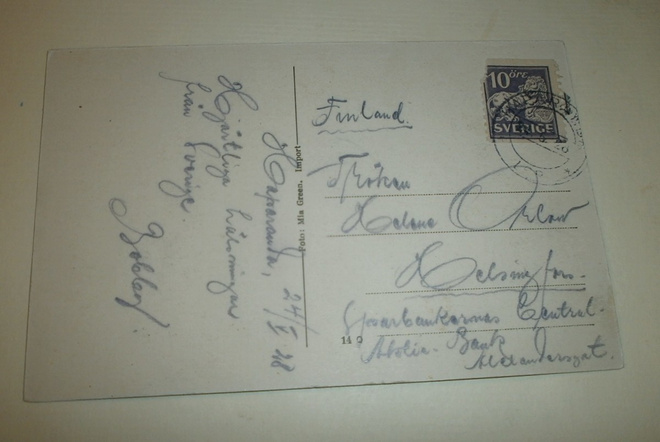 Haparanda, 24/5 28
Hjärtliga hälsningar
från Sverige.
Bobby.
Foto: Mia Green. Import
14 0
10 ÖRE
SVERIGE
Finland.
Fröken
Helene
Helsingfors.
Sparbankernas Central-
Aktie-Bank
Alexandersgat.